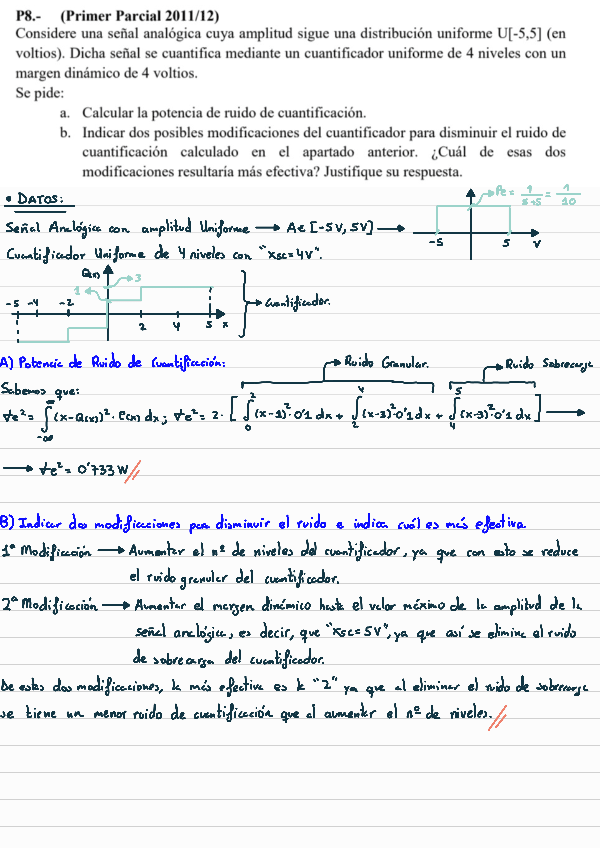 P8.- (Primer Parcial 2011/12)
Considere una señal analógica cuya amplitud sigue una distribución uniforme U[-5,5] (en
voltios). Dicha señal se cuantifica mediante un cuantificador uniforme de 4 niveles con un
margen dinámico de 4 voltios.
Se pide:
a. Calcular la potencia de ruido de cuantificación.
b. Indicar dos posibles modificaciones del cuantificador para disminuir el ruido de
cuantificación calculado en el apartado anterior. ¿Cuál de esas dos
modificaciones resultaría más efectiva? Justifique su respuesta.
• DATOS:
Pe = 1/(5+5) = 1/10
Señal Analógica con amplitud Uniforme → A∈[-5V, 5V] →
-5 5 V
Cuantificador Uniforme de 4 niveles con "Xsc=4V".
Q(x) 3
1
-5 -4 -2
2 4 5 x
→ Cuantificador.
A) Potencia de Ruido de Cuantificación:
→ Ruido Granular.
→ Ruido Sobrecarga
Sabemos que:
σe² = ∫_{-∞}^{∞} (x-Q(x))²· f(x) dx ; σe² = 2·[ ∫_0^2 (x-1)²·0'1 dx + ∫_2^4 (x-3)²·0'1 dx + ∫_4^5 (x-3)²·0'1 dx ] →
→ σe² = 0'733 W //
B) Indicar dos modificaciones para disminuir el ruido e indica cuál es más efectiva.
1ª Modificación → Aumentar el nº de niveles del cuantificador, ya que con esto se reduce
el ruido granular del cuantificador.
2ª Modificación → Aumentar el margen dinámico hasta el valor máximo de la amplitud de la
señal analógica, es decir, que "Xsc=5V", ya que así se elimina el ruido
de sobrecarga del cuantificador.
De estas dos modificaciones, la más efectiva es la "2" ya que al eliminar el ruido de sobrecarga
se tiene un menor ruido de cuantificación que al aumentar el nº de niveles. //